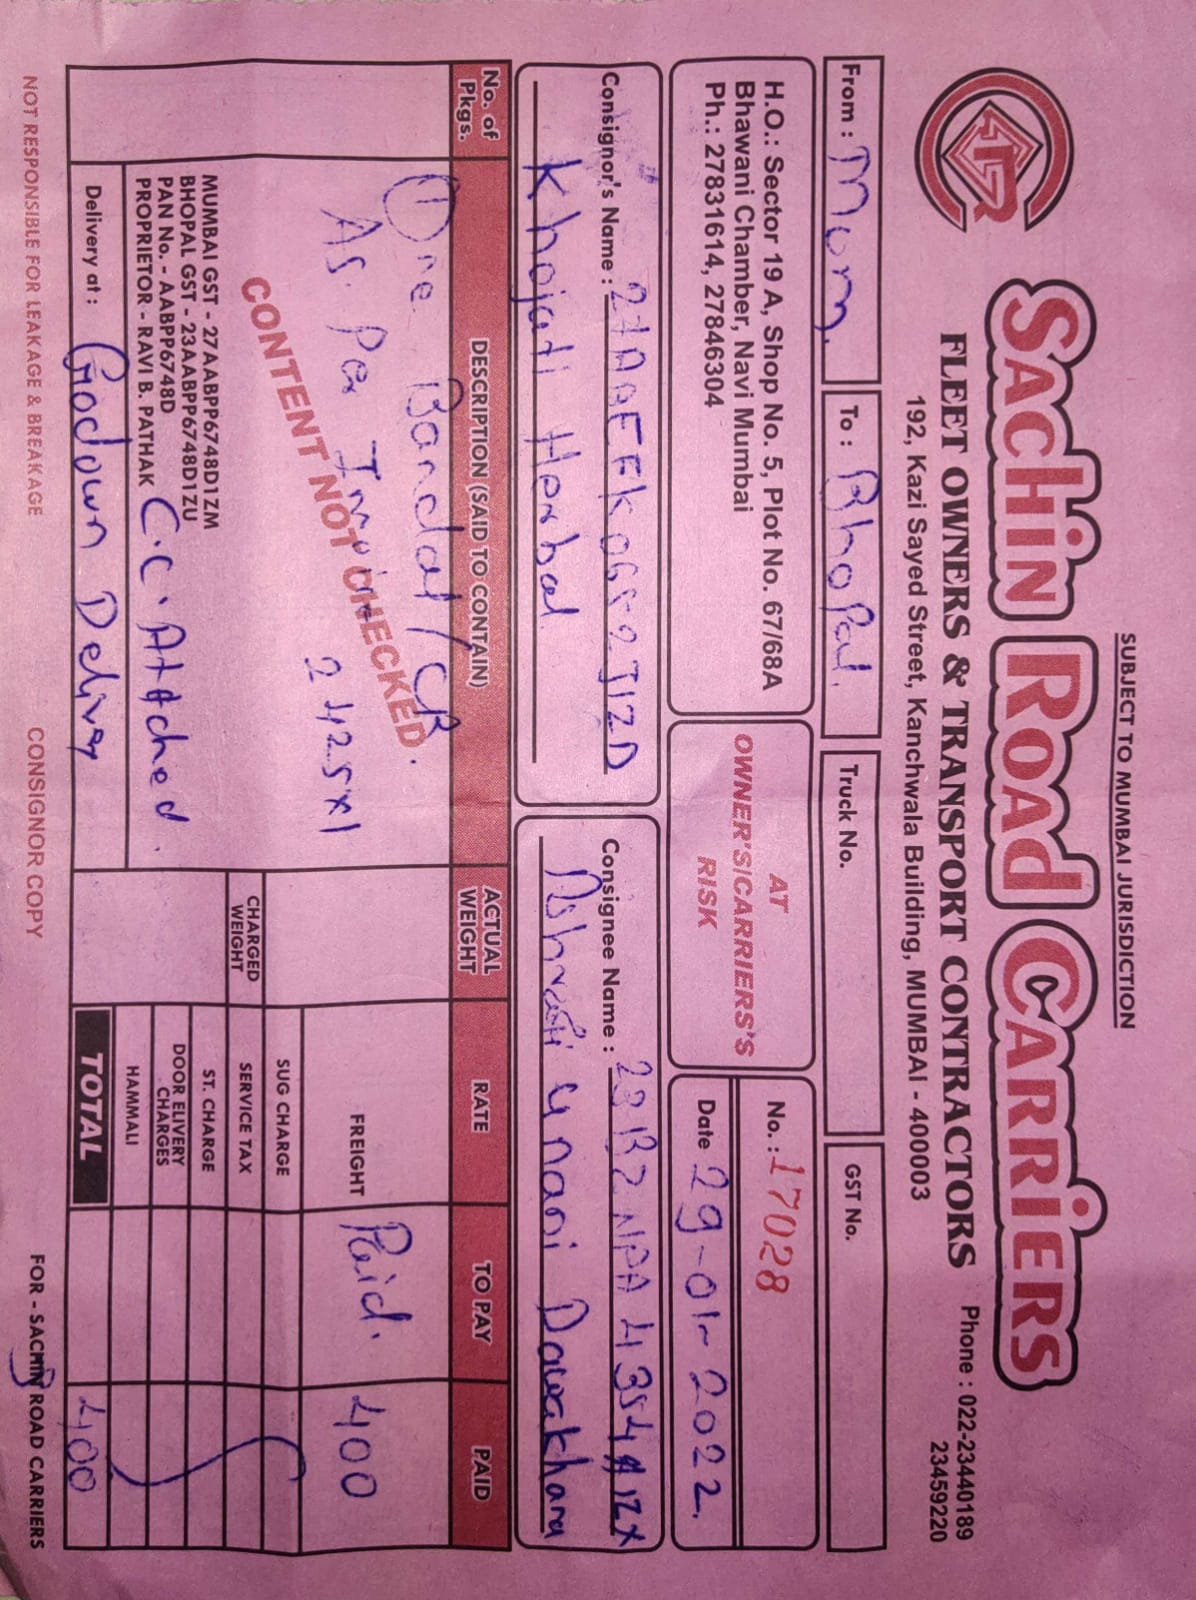 SUBJECT TO MUMBAI JURISDICTION
SACHIN ROAD CARRIERS
FLEET OWNERS & TRANSPORT CONTRACTORS
Phone : 022-23440189
23459220
192, Kazi Sayed Street, Kanchwala Building, MUMBAI - 400003
From : Mum.
To : Bhopal.
Truck No.
GST No.
H.O.: Sector 19 A, Shop No. 5, Plot No. 67/68A
Bhawani Chamber, Navi Mumbai
Ph.: 27831614, 27846304
AT
OWNER'S/CARRIERS'S
RISK
No. : 17028
Date 29-01-2022.
Consignor's Name :
Khojati Herbal.
Consignee Name :
unani Dawakhana
No. of
Pkgs.
DESCRIPTION (SAID TO CONTAIN)
ACTUAL
WEIGHT
RATE
TO PAY
PAID
① One Bandal / CB.
As. Per Invoice
2425x1
CONTENT NOT CHECKED
FREIGHT
Paid.
400
SUG CHARGE
CHARGED
WEIGHT
SERVICE TAX
ST. CHARGE
DOOR ELIVERY
CHARGES
HAMMALI
MUMBAI GST - 27AABPP6748D1ZM
BHOPAL GST - 23AABPP6748D1ZU
PAN No. - AABPP6748D
PROPRIETOR - RAVI B. PATHAK
C.C. Attched.
Delivery at : Godown Delivey
TOTAL
400
NOT RESPONSIBLE FOR LEAKAGE & BREAKAGE
CONSIGNOR COPY
FOR - SACHIN ROAD CARRIERS